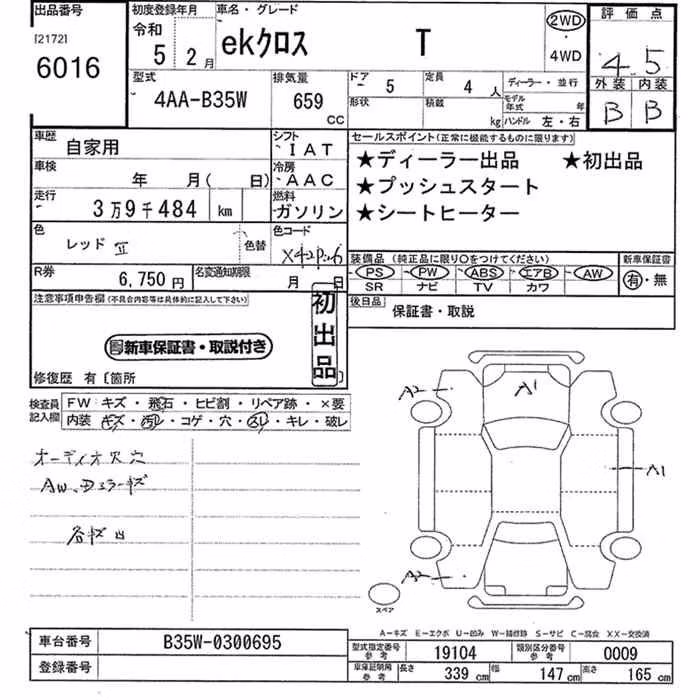 出品番号 初度登録年月 車名・グレード 評価点
[2172] 令和 2WD
6016 5年 2月 ekクロス T 4WD 4.5
外装 内装
B B
型式 排気量 ドア 5 定員 4人 ディーラー・並行
4AA-B35W 659 CC 形状 積載 kg モデル年式 年
ハンドル 左・右
車歴 自家用 シフト IAT セールスポイント(正常に機能するものに限ります)
車検 年 月( 日) 冷房 AAC ★ディーラー出品 ★初出品
走行 3万9千484 km 燃料 ガソリン ★プッシュスタート
★シートヒーター
色 レッドⅡ 色替 色コード
装備品 (純正品に限り〇をつけてください) 新車保証書
PS PW ABS エアB AW 有・無
SR ナビ TV カワ
R券 6,750円 名変通知期限 月 日
後日品 保証書・取説
注意事項申告欄(不具合内容等は具体的に記入して下さい)
初出品
新車保証書・取説付き
修復歴 有〔箇所
検査員記入欄 FW キズ・飛石・ヒビ割・リペア跡・×要
内装 キズ・汚レ・コゲ・穴・スレ・キレ・破レ
オーディオ穴
各キズ凹
A2 A1
A1
A2
スペア
A-キズ E-エクボ U-凹み W-補修跡 S-サビ C-腐食 XX-交換済
車台番号 B35W-0300695
登録番号
型式指定番号 参考 19104 類別区分番号 参考 0009
車庫証明用 参考 長さ 339 cm 幅 147 cm 高さ 165 cm